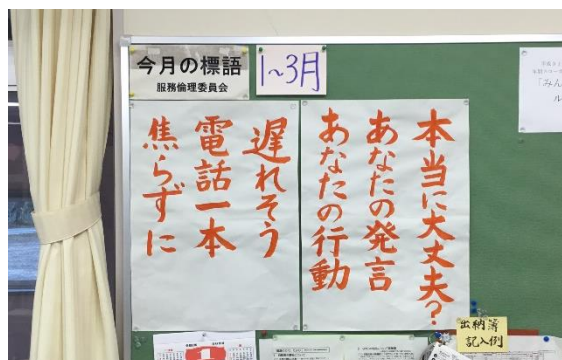 今月の標語
服務倫理委員会
1～3月
本当に大丈夫？
あなたの発言
あなたの行動
遅れそう
電話一本
焦らずに
出納簿
記入例